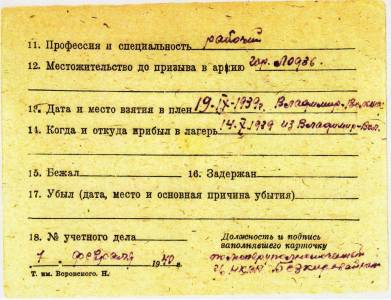 11. Профессия и специальность рабочий
12. Местожительство до призыва в армию гор. Лодзь.
13. Дата и место взятия в плен 19.IX-1939г. Владимир-
14. Когда и откуда прибыл в лагерь: 14.X 1939 из Владимир-Вол.
15. Бежал 16. Задержан
17. Убыл (дата, место и основная причина убытия)
18. № учетного дела
Должность и подпись
заполнявшего карточку
7 февраля 1940 г.
Т. им. Воровского. Н.